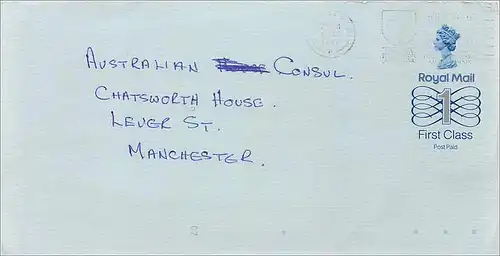 AUSTRALIAN CONSUL.
CHATSWORTH HOUSE.
LEVER ST.
MANCHESTER.
Royal Mail
1
First Class
Post Paid